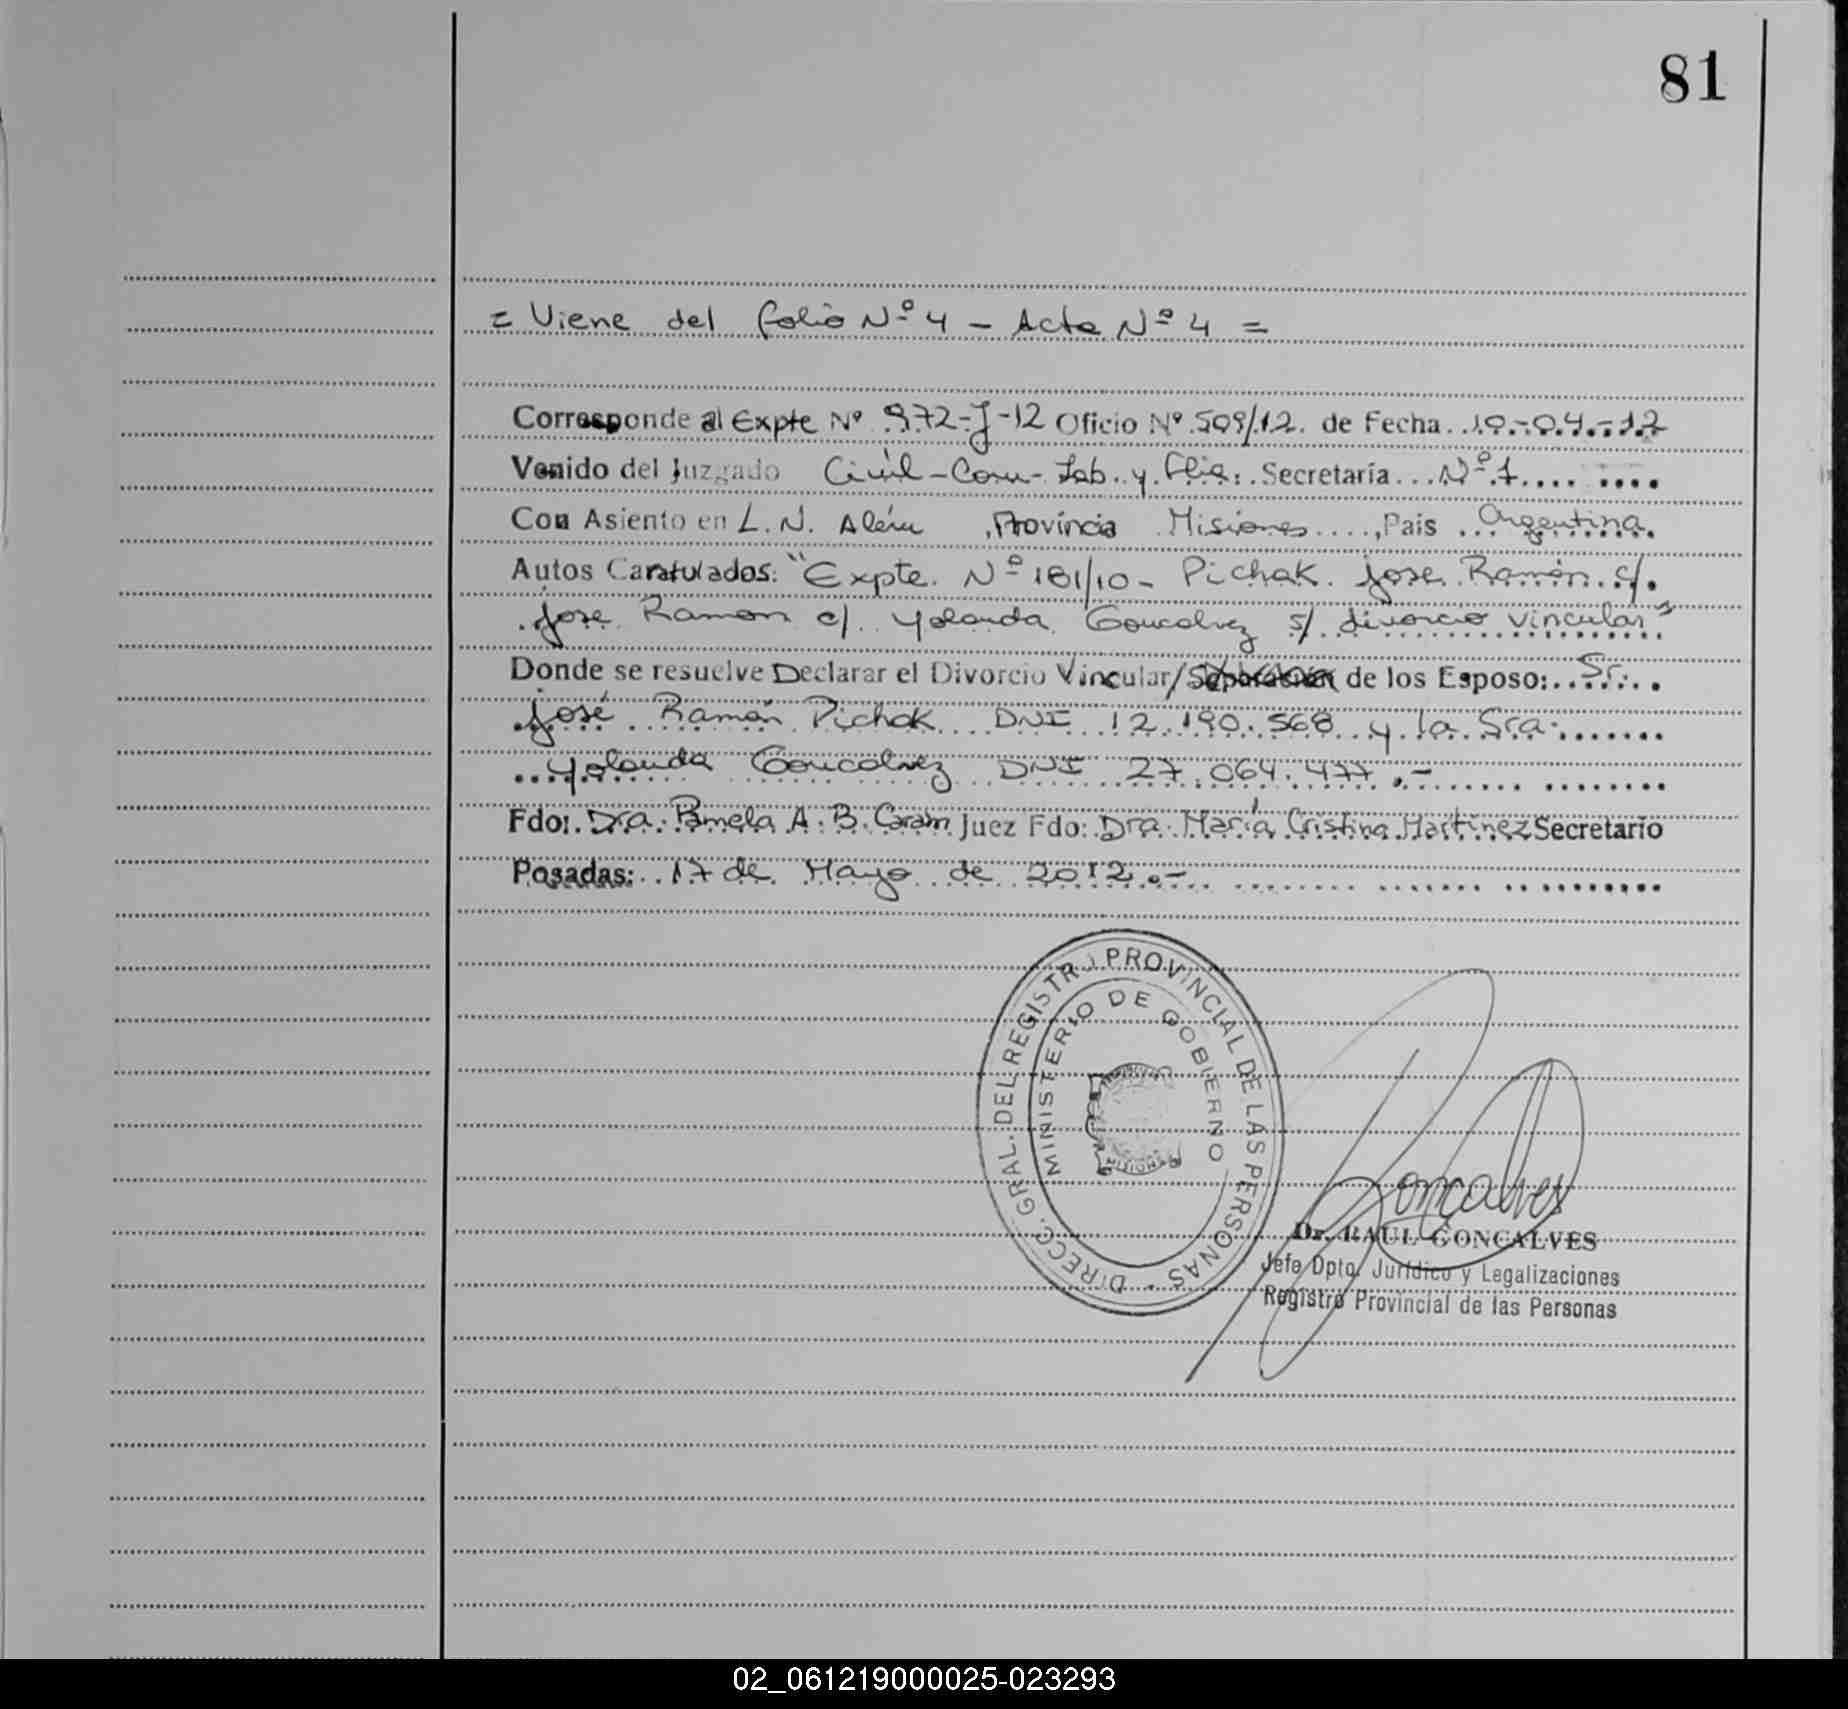 81
= Viene del folio Nº 4 - Acta Nº 4 =
Corresponde al Expte Nº 972-J-12 Oficio Nº 509/12. de Fecha 10-04-12
Venido del Juzgado Civil-Com-Lab. y Flia. Secretaría Nº 1
Con Asiento en L. N. Além, Provincia Misiones, País Argentina.
Autos Caratulados: "Expte. Nº 181/10- Pichak Jose Ramón c/.
Jose Ramon c/. Yolanda Goncalvez s/ divorcio vincular"
Donde se resuelve Declarar el Divorcio Vincular/Separación de los Esposo: Sr.
José Ramón Pichak DNI 12.190.568 y la Sra.
Yolanda Goncalvez DNI 27.064.477.-
Fdo: Dra. Pamela A. B. Caram Juez Fdo: Dra. María Cristina Martinez Secretario
Posadas: 17 de Mayo de 2012.-
DIRECC. GRAL. DEL REGISTRO PROVINCIAL DE LAS PERSONAS
MINISTERIO DE GOBIERNO
MISIONES
Goncalves
Dr. RAUL GONCALVES
Jefe Dpto. Jurídico y Legalizaciones
Registro Provincial de las Personas
02_061219000025-023293